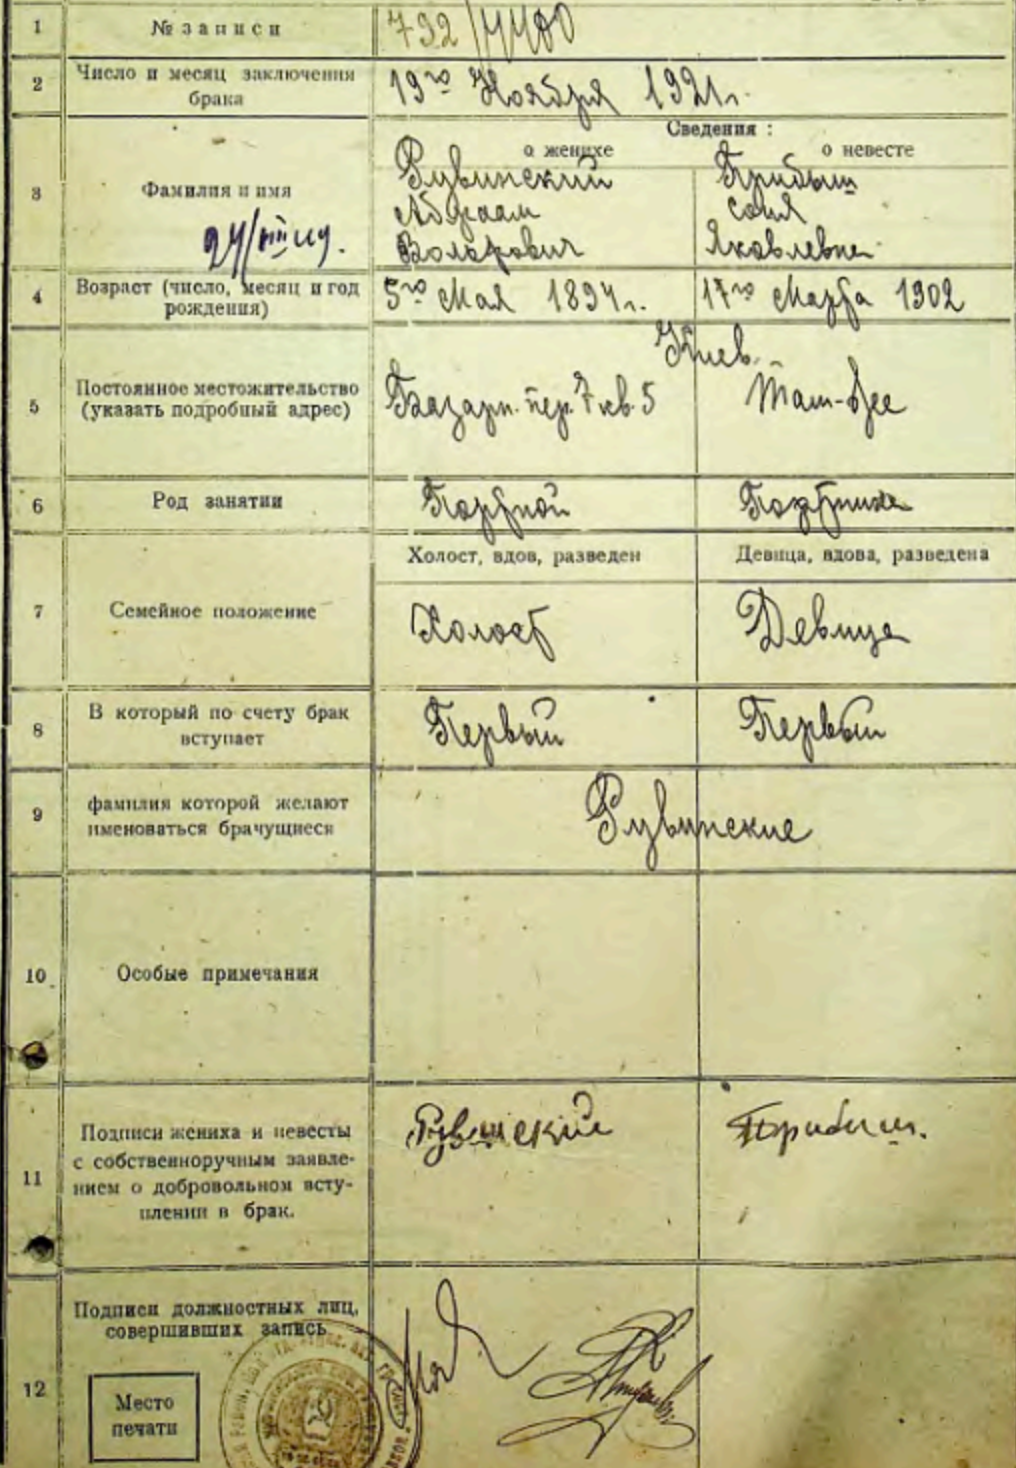 1 № записи 792/4480
2 Число и месяц заключения
брака
19го Ноября 1921г.
Сведения :
о женихе о невесте
3 Фамилия и имя
Рувинский Прибыш
Абраам Соня
Яковлевна
4 Возраст (число, месяц и год
рождения)
5го Мая 1894г. 17го Марта 1902
Киев.
5 Постоянное местожительство
(указать подробный адрес)
Базарн. пер. 7 кв. 5 Там-же
6 Род занятии Портной Портниха
Холост, вдов, разведен Девица, вдова, разведена
7 Семейное положение Холост Девица
8 В который по счету брак
вступает
Первый Первый
9 фамилия которой желают
именоваться брачущиеся
Рувинские
10 Особые примечания
11 Подписи жениха и невесты
с собственноручным заявле-
нием о добровольном всту-
плении в брак.
Рувинский Прибыш.
12 Подписи должностных лиц,
совершивших запись
Место
печати